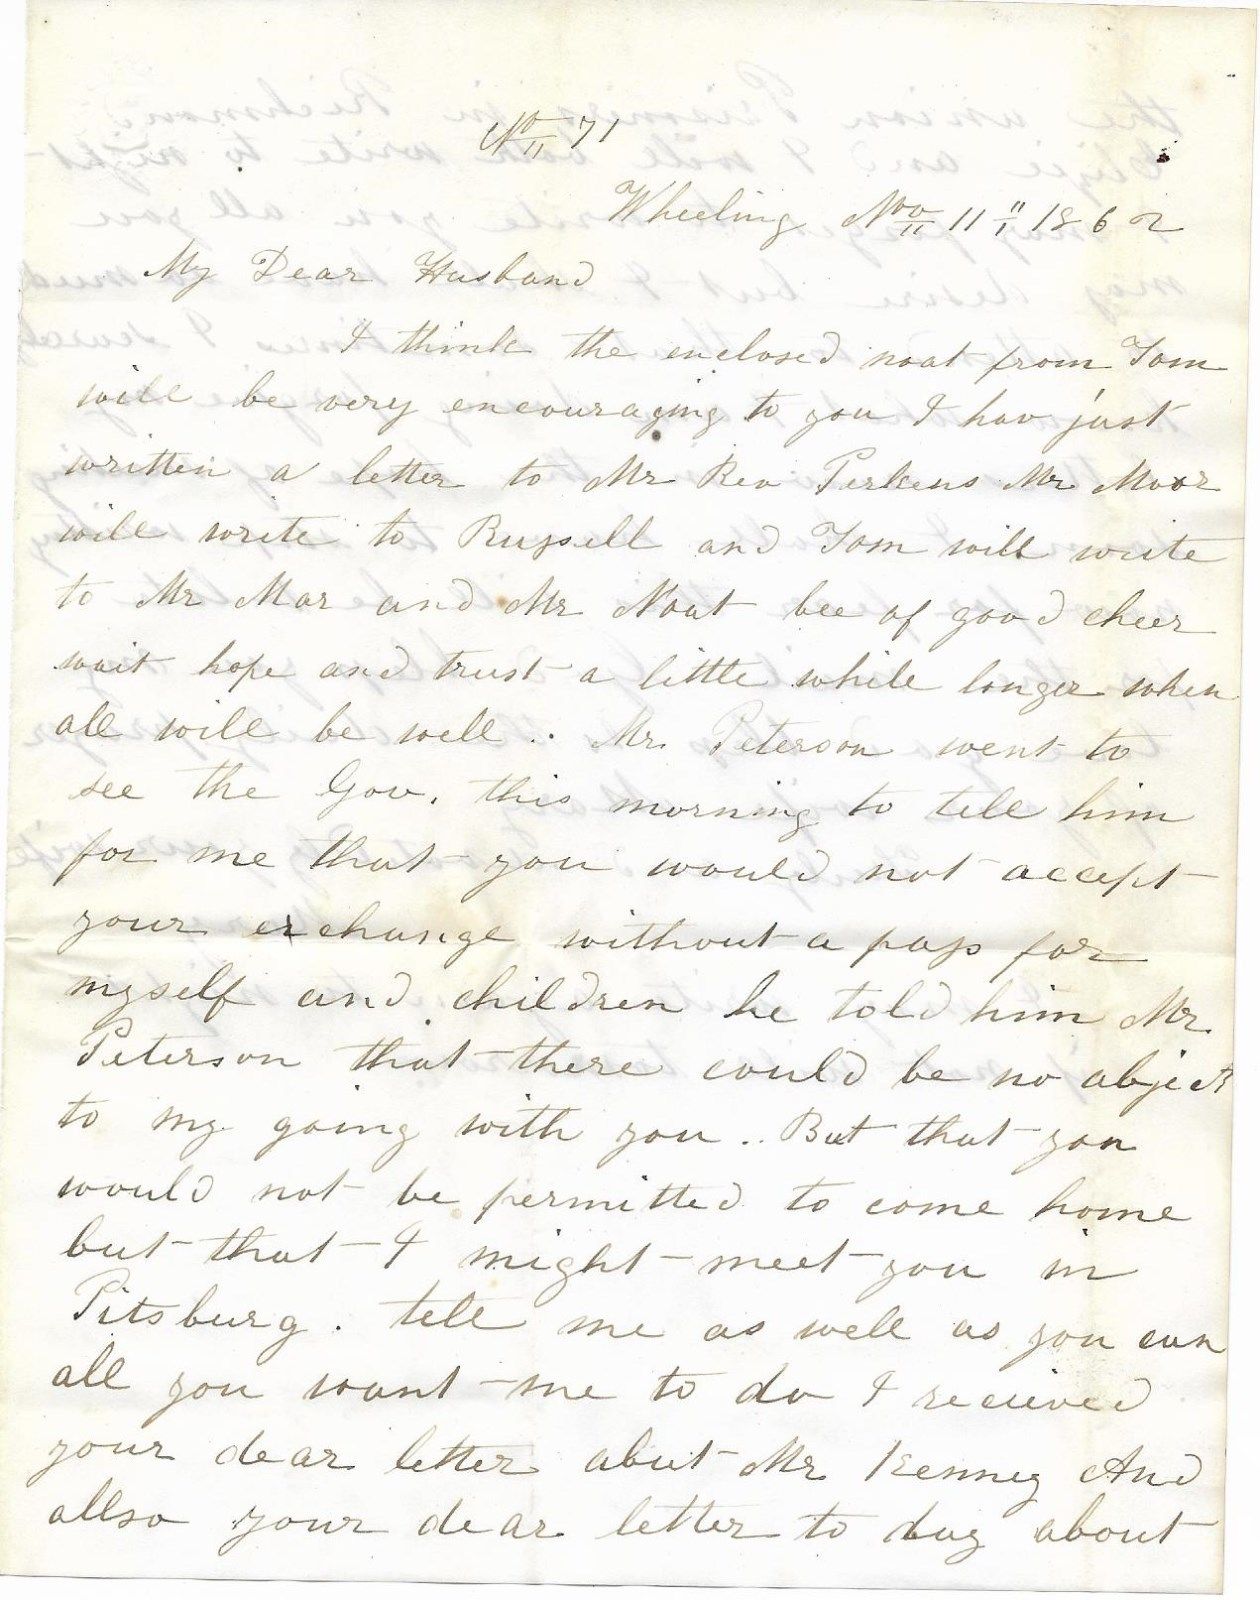 No 71
Wheeling Nov 11" 1862
My Dear Husband
I think the enclosed noat from Tom
will be very encouraging to you I hav just
written a letter to Mr Rev Perkens Mr Moor
will write to Russell and Tom will write
to Mr Mar and Mr Noat bee of good cheer
wait hope and trust a little while longer when
all will be well .. Mr. Peterson went to
see the Gov. this morning to tell him
for me that you would not accept
your exchange without a pass for
myself and children he told him Mr.
Peterson that there could be no object
to my going with you .. But that you
would not be permitted to come home
but that I might meet you in
Pitsburg. tell me as well as you can
all you want me to do I recieved
your dear letter abut Mr Kenney And
allso your dear letter to day about